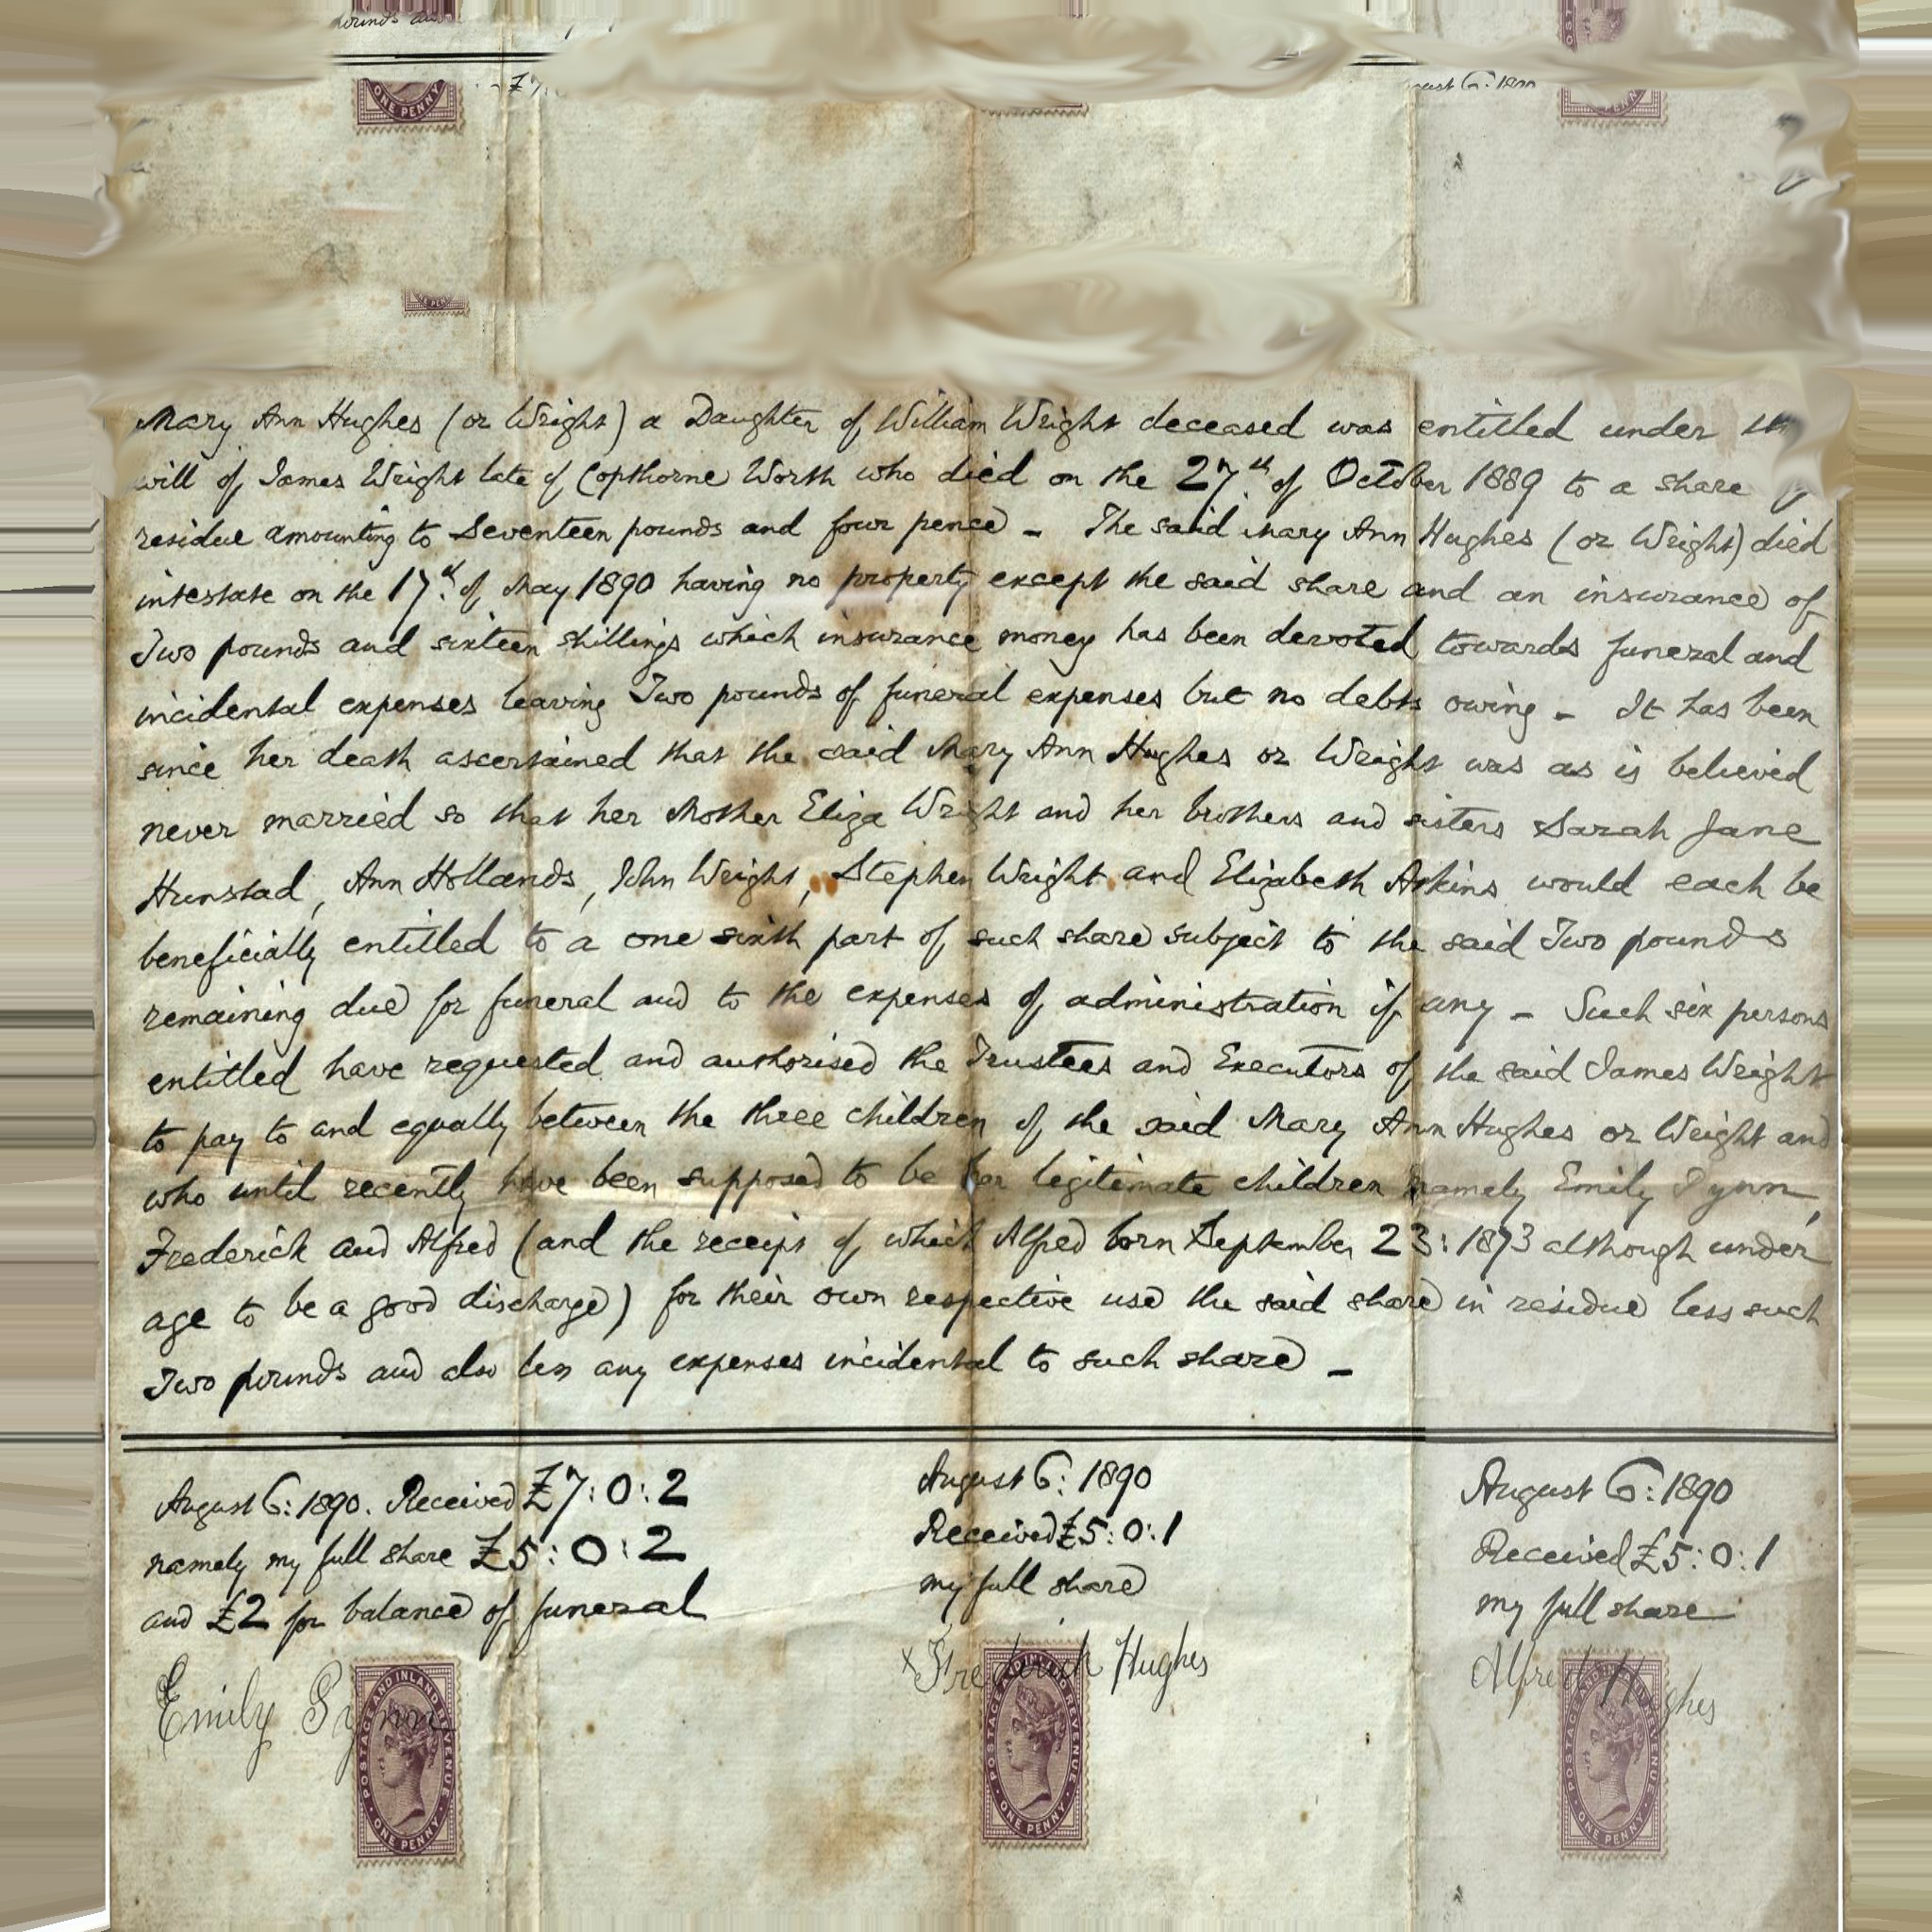 Mary Ann Hughes (or Wright) a Daughter of William Wright deceased was entitled under the
will of James Wright late of Copthorne Worth who died on the 27th of October 1889 to a share of
residue amounting to Seventeen pounds and four pence - The said Mary Ann Hughes (or Wright) died
intestate on the 17th of May 1890 having no property except the said share and an insurance of
Two pounds and sixteen shillings which insurance money has been devoted towards funeral and
incidental expenses leaving Two pounds of funeral expenses but no debts owing - It has been
since her death ascertained that the said Mary Ann Hughes or Wright was as is believed
never married so that her Mother Eliza Wright and her brothers and sisters Sarah Jane
Hunstad, Ann Hollands, John Wright, Stephen Wright and Elizabeth Atkins would each be
beneficially entitled to a one sixth part of such share subject to the said Two pounds
remaining due for funeral and to the expenses of administration if any - Such six persons
entitled have requested and authorised the Trustees and Executors of the said James Wright
to pay to and equally between the three children of the said Mary Ann Hughes or Wright and
who until recently have been supposed to be her legitimate children namely Emily Pynn,
Frederick and Alfred (and the receipt of which Alfred born September 23: 1873 although under
age to be a good discharge) for their own respective use the said share in residue less such
Two pounds and also less any expenses incidental to such share -
August 6: 1890. Received £7:0:2
namely my full share £5:0:2
and £2 for balance of funeral
Emily Pynn
POSTAGE AND INLAND REVENUE
ONE PENNY
August 6: 1890
Received £5:0:1
my full share
x Frederick Hughes
POSTAGE AND INLAND REVENUE
ONE PENNY
August 6: 1890
Received £5:0:1
my full share
Alfred Hughes
POSTAGE AND INLAND REVENUE
ONE PENNY